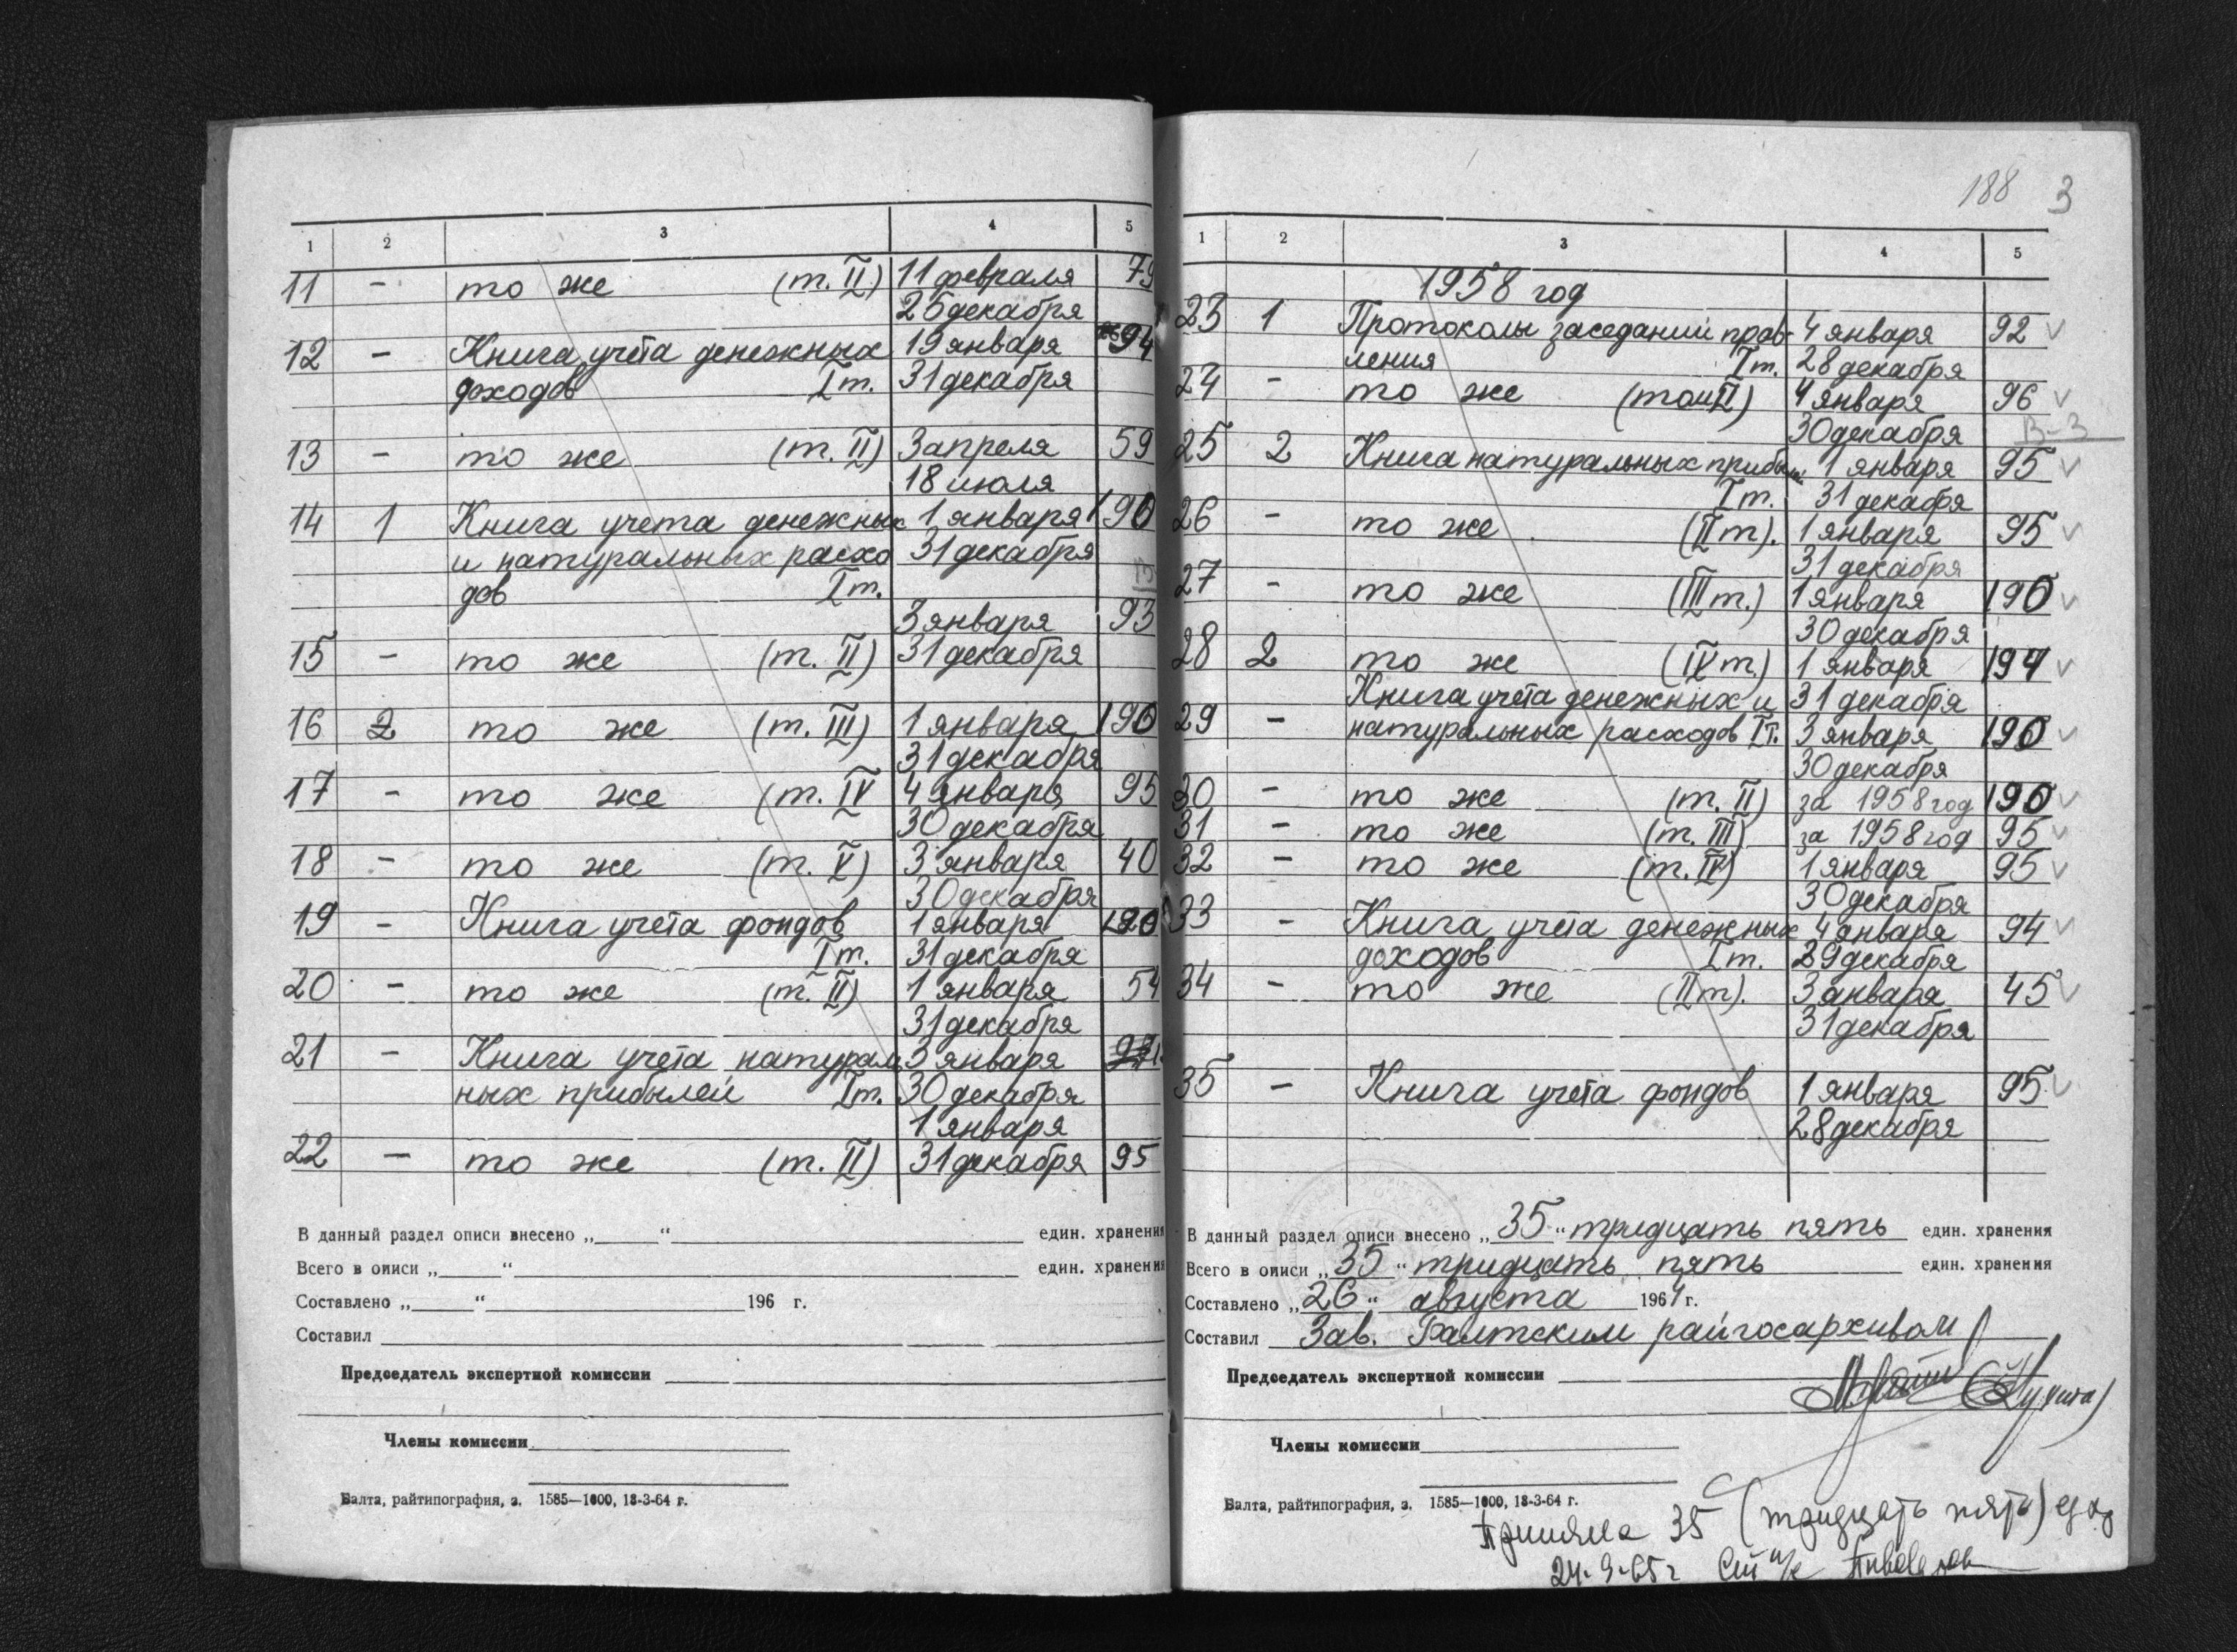 1 2 3 4 5
11 - то же (т. II) 11 февраля 79
25 декабря
12 - Книга учёта денежных 19 января 94
доходов Iт. 31 декабря
13 - то же (т. II) 3 апреля 59
18 июля
14 1 Книга учета денежных 1 января 190
и натуральных расхо 31 декабря
дов Iт.
3 января 93
15 - то же (т. II) 31 декабря
16 2 то же (т. III) 1 января 190
31 декабря
17 - то же (т. IV 4 января 95
30 декабря
18 - то же (т. V) 3 января 40
30 декабря
19 - Книга учета фондов 1 января 190
Iт. 31 декабря
20 - то же (т. II) 1 января 54
31 декабря
21 - Книга учета натураль 3 января
ных прибылей Iт. 30 декабря
1 января
22 - то же (т. II) 31 декабря 95
В данный раздел описи внесено „ “ един. хранения
Всего в описи „ “ един. хранения
Составлено „ “ 196 г.
Составил
Председатель экспертной комиссии
Члены комиссии
Балта, райтипография, з. 1585—1000, 18-3-64 г.
188 3
1 2 3 4 5
1958 год
23 1 Протоколы заседаний прав- 4 января 92
ления Iт. 28 декабря
24 - то же (том II) 4 января 96
30 декабря В-3
25 2 Книга натуральных прибыл. 1 января 95
Iт. 31 декабря
26 - то же (IIт). 1 января 95
31 декабря
27 - то же (IIIт.) 1 января 190
30 декабря
28 2 то же (IVт.) 1 января 194
Книга учёта денежных и 31 декабря
29 - натуральных расходов Iт. 3 января 190
30 декабря
30 - то же (т. II) за 1958 год 190
31 - то же (т. III) за 1958 год 95
32 - то же (т. IV) 1 января 95
30 декабря
33 - Книга учета денежных 4 января 94
доходов Iт. 29 декабря
34 - то же (IIт). 3 января 45
31 декабря
35 - Книга учета фондов 1 января 95
28 декабря
В данный раздел описи внесено „35“ тридцать пять един. хранения
Всего в описи „35“ тридцать пять един. хранения
Составлено „26“ августа 1964 г.
Составил Зав. Балтским райгосархивом
Председатель экспертной комиссии
Члены комиссии
Балта, райтипография, з. 1585—1000, 18-3-64 г.
Приняла 35 (тридцать пять) ед хр
24-9-65 г